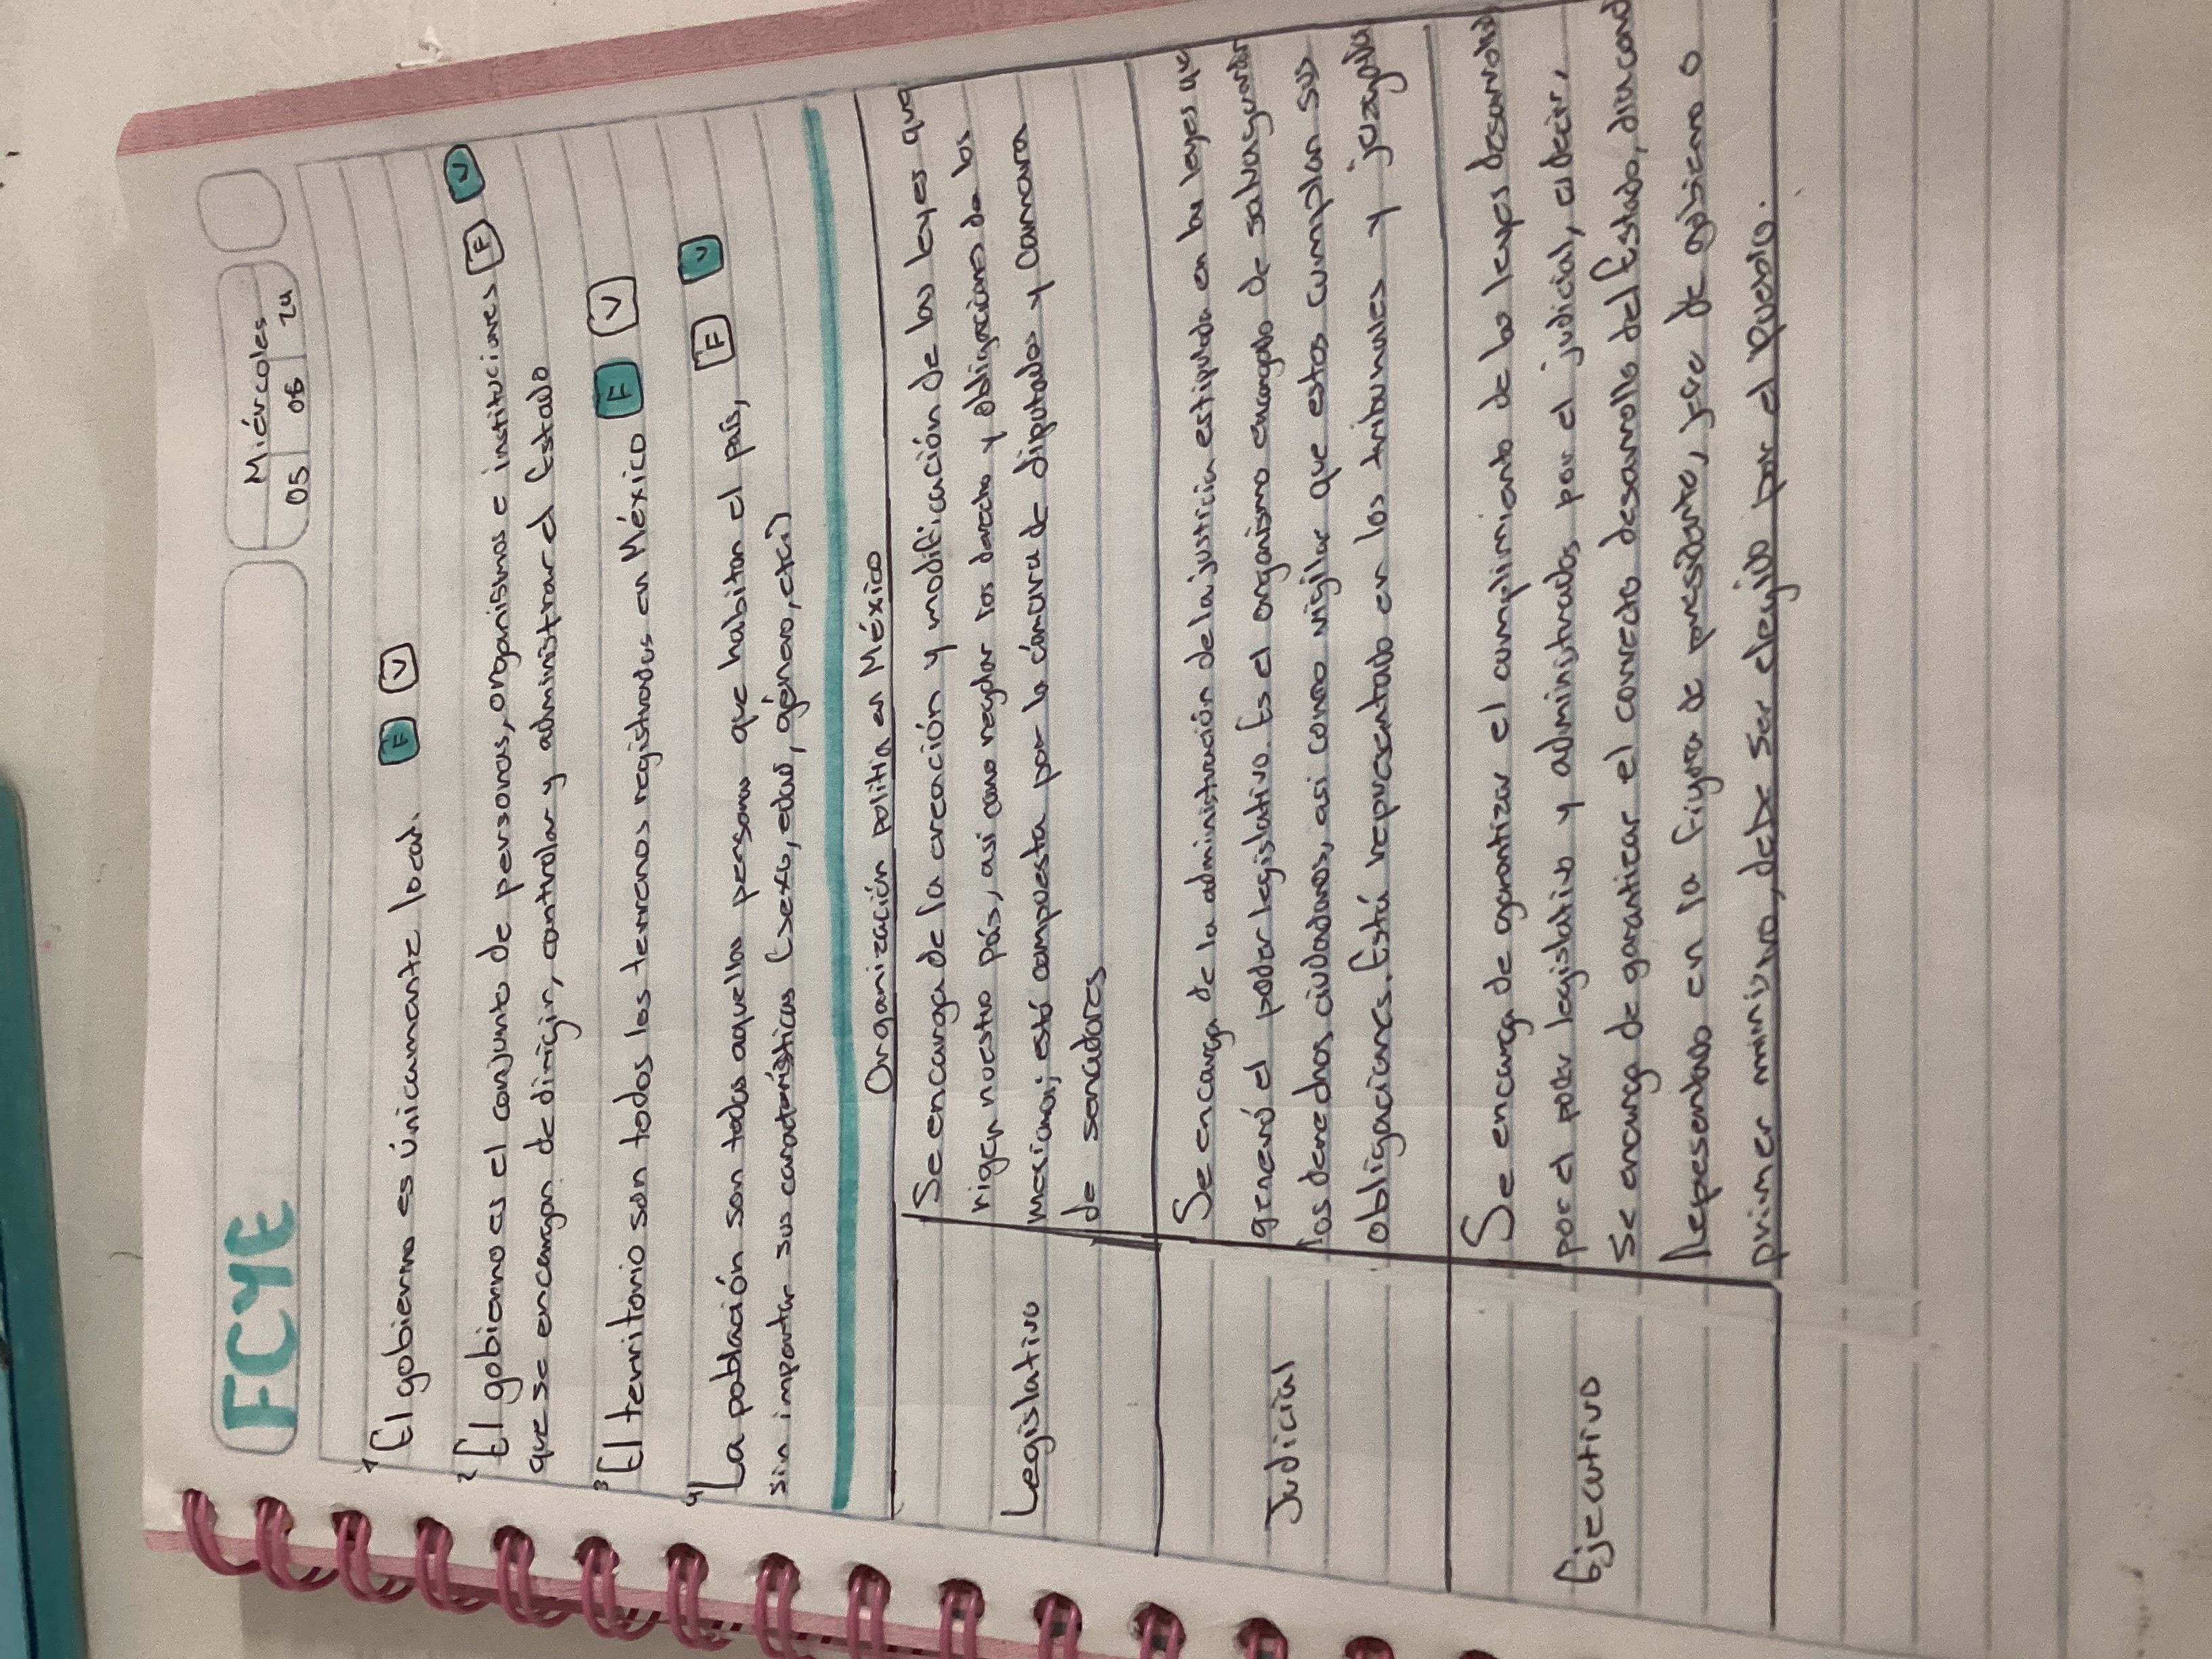 FCYE
Miércoles
05 06 24
1 El gobierno es únicamente local. F V
2 El gobierno es el conjunto de personas, organismos e instituciones F V
que se encargan de dirigir, controlar y administrar el Estado
3 El territorio son todos los terrenos registrados en México F V
4 La población son todas aquellas personas que habitan el país, F V
sin importar sus características (sexo, edad, género, etc.)
Organización politia en México
Legislativo
Se encarga de la creación y modificación de las leyes que
rigen nuestro país, asi como regular los derecho y obligaciones de los
mexicanos; está compuesta por la cámara de diputados y Camara
de senadores
Judicial
Se encarga de la administración de la justicia estipulada en las leyes que
generó el poder legislativo. Es el organismo encargado de salvaguardar
los derechos ciudadanos, asi como vigilar que estos cumplan sus
obligaciones. Está representado en los tribunales y juzgados
Ejecutivo
Se encarga de garantizar el cumplimiento de las leyes desarrolladas
por el poder legislativo y administrados por el judicial, es decir,
se encarga de garantizar el correcto desarrollo del Estado,
Repesentado en la figura de presidente, jefe de gobierno o
primer ministro, debe ser elegido por el pueblo.